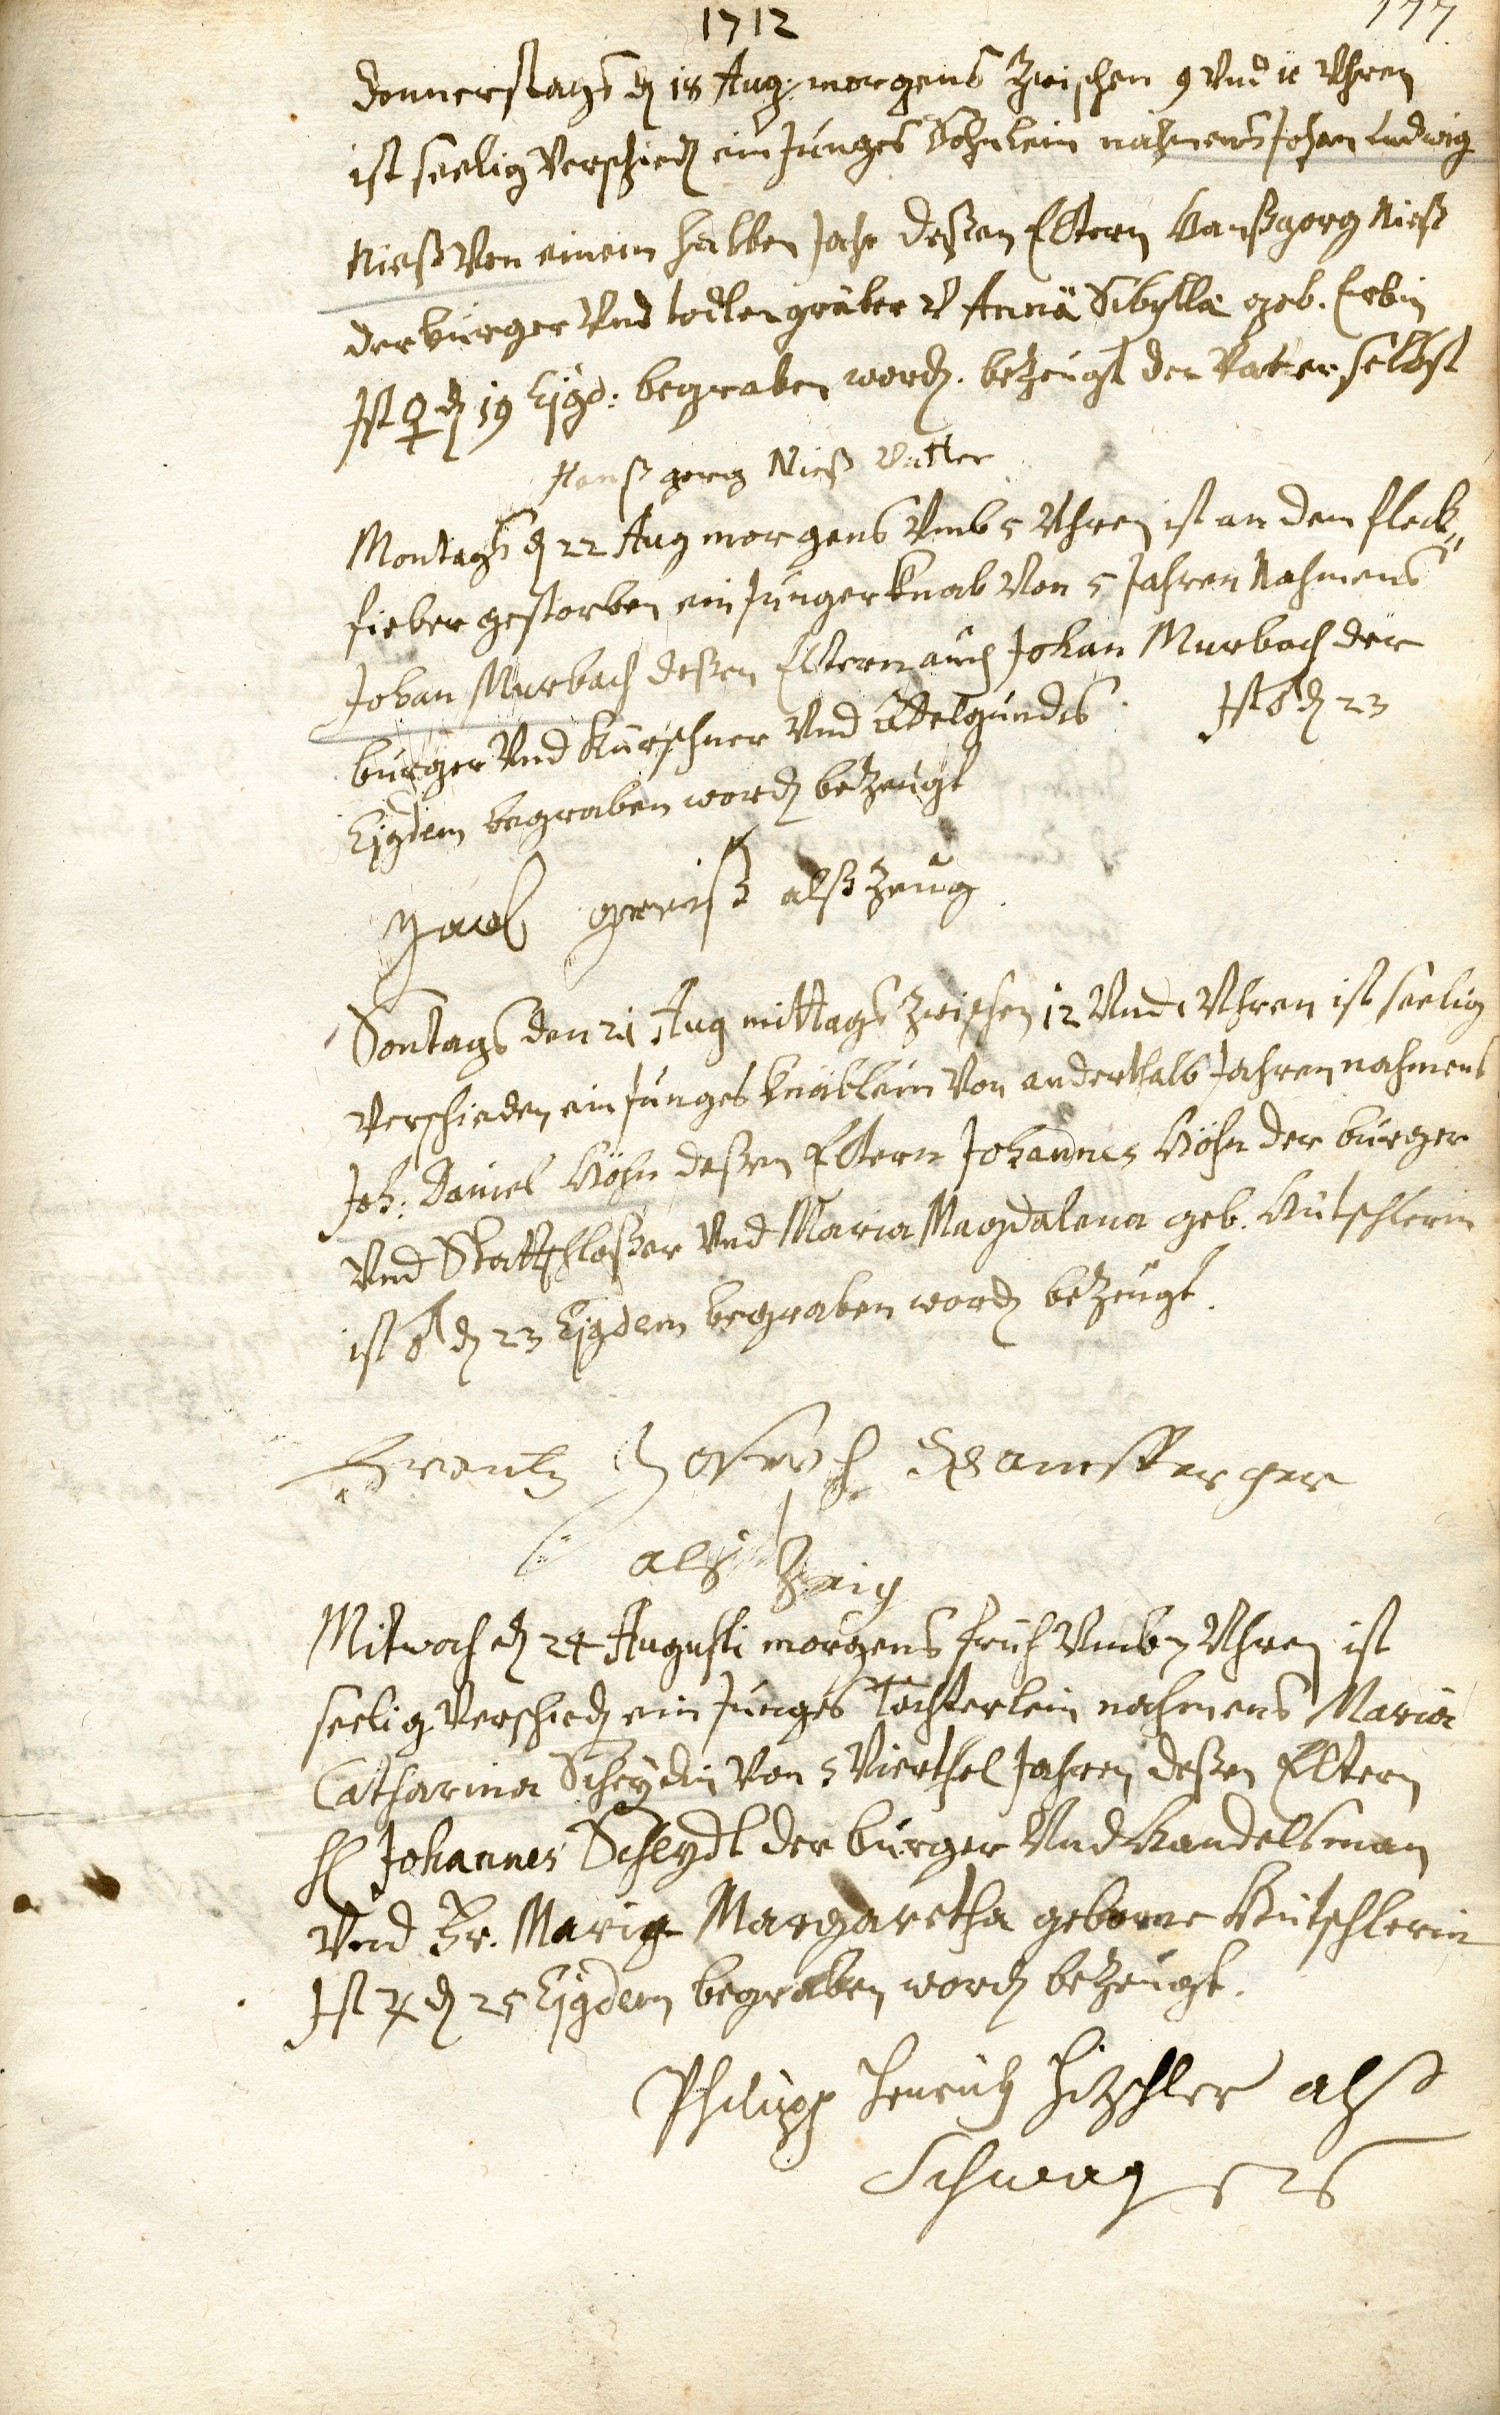 1712
177
Donnerstags dẽ 18 Aug. morgens zwischen 9 Vnd 11 Vhren
ist seelig Verschiedẽ ein Junges Söhnlein nahmens Johan Ludwig
Nieß Von einem halben Jahr deßen Eltern Hanßgorg Nieß
der burger Vnd todtengräber V Anna Sibylla geb. Erbin
Ist ♀ dẽ 19 Ejgd: begraben wordẽ. bezeugt der Vatter selbst
Hanß gorg Nieß Vatter
Montags dẽ 22 Aug morgens Vmb 5 Vhren ist an dem fleck
fieber gestorben ein Junger Knab Von 5 Jahren Nahmens
Johan Murbach deßen Eltern auch Johan Murbach der
burger Vnd Kürschner Vnd Adelgundis. Ist ♂ dẽ 23
Ejgdem begraben wordẽ bezeugt
alß Zeug
Sontags den 21 Aug mittags Zwischen 12 Vnd 1 Vhren ist seelig
Verschieden ein Junges Knäblein Von anderthalb Jahren nahmens
Joh: Daniel Höhn deßen Eltern Johannes Höhn der burger
Vnd Stattschloßer Vnd Maria Magdalena geb. Hütschlerin
ist ♂ dẽ 23 Ejgdem begraben wordẽ bezeugt.
Frantz
als Zeig
Mitwoch dẽ 24 Augusti morgens früh Vmb 7 Vhren ist
seelig Verschiedẽ ein Junges Töchterlein nahmens Maria
Catharina Scheydin Von 5 Vierthel Jahren deßen Eltern
H Johannes Scheydt der burger Vnd Handelsman
Vnd Fr. Maria Margaretha geborne Hütschlerin
Ist ♃ dẽ 25 Ejgdem begraben wordẽ bezeugt.
Philipp Henrich Hitschler alß
Schwager